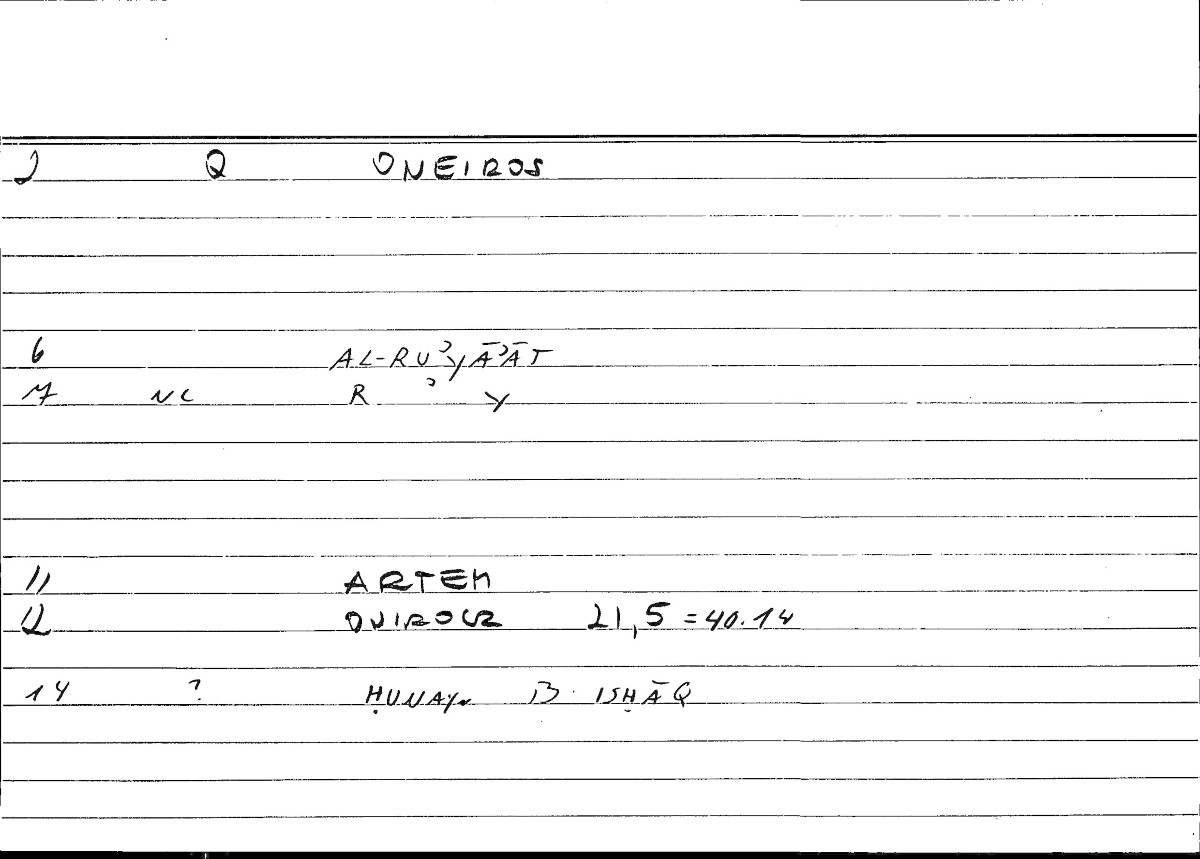 2 Q ONEIROS
6 AL-RUʾYĀʾĀT
7 NC R ʾ Y
11 ARTEM
12 ONIROCR 21,5 = 40.14
14 ? ḤUNAYN B. ISḤĀQ